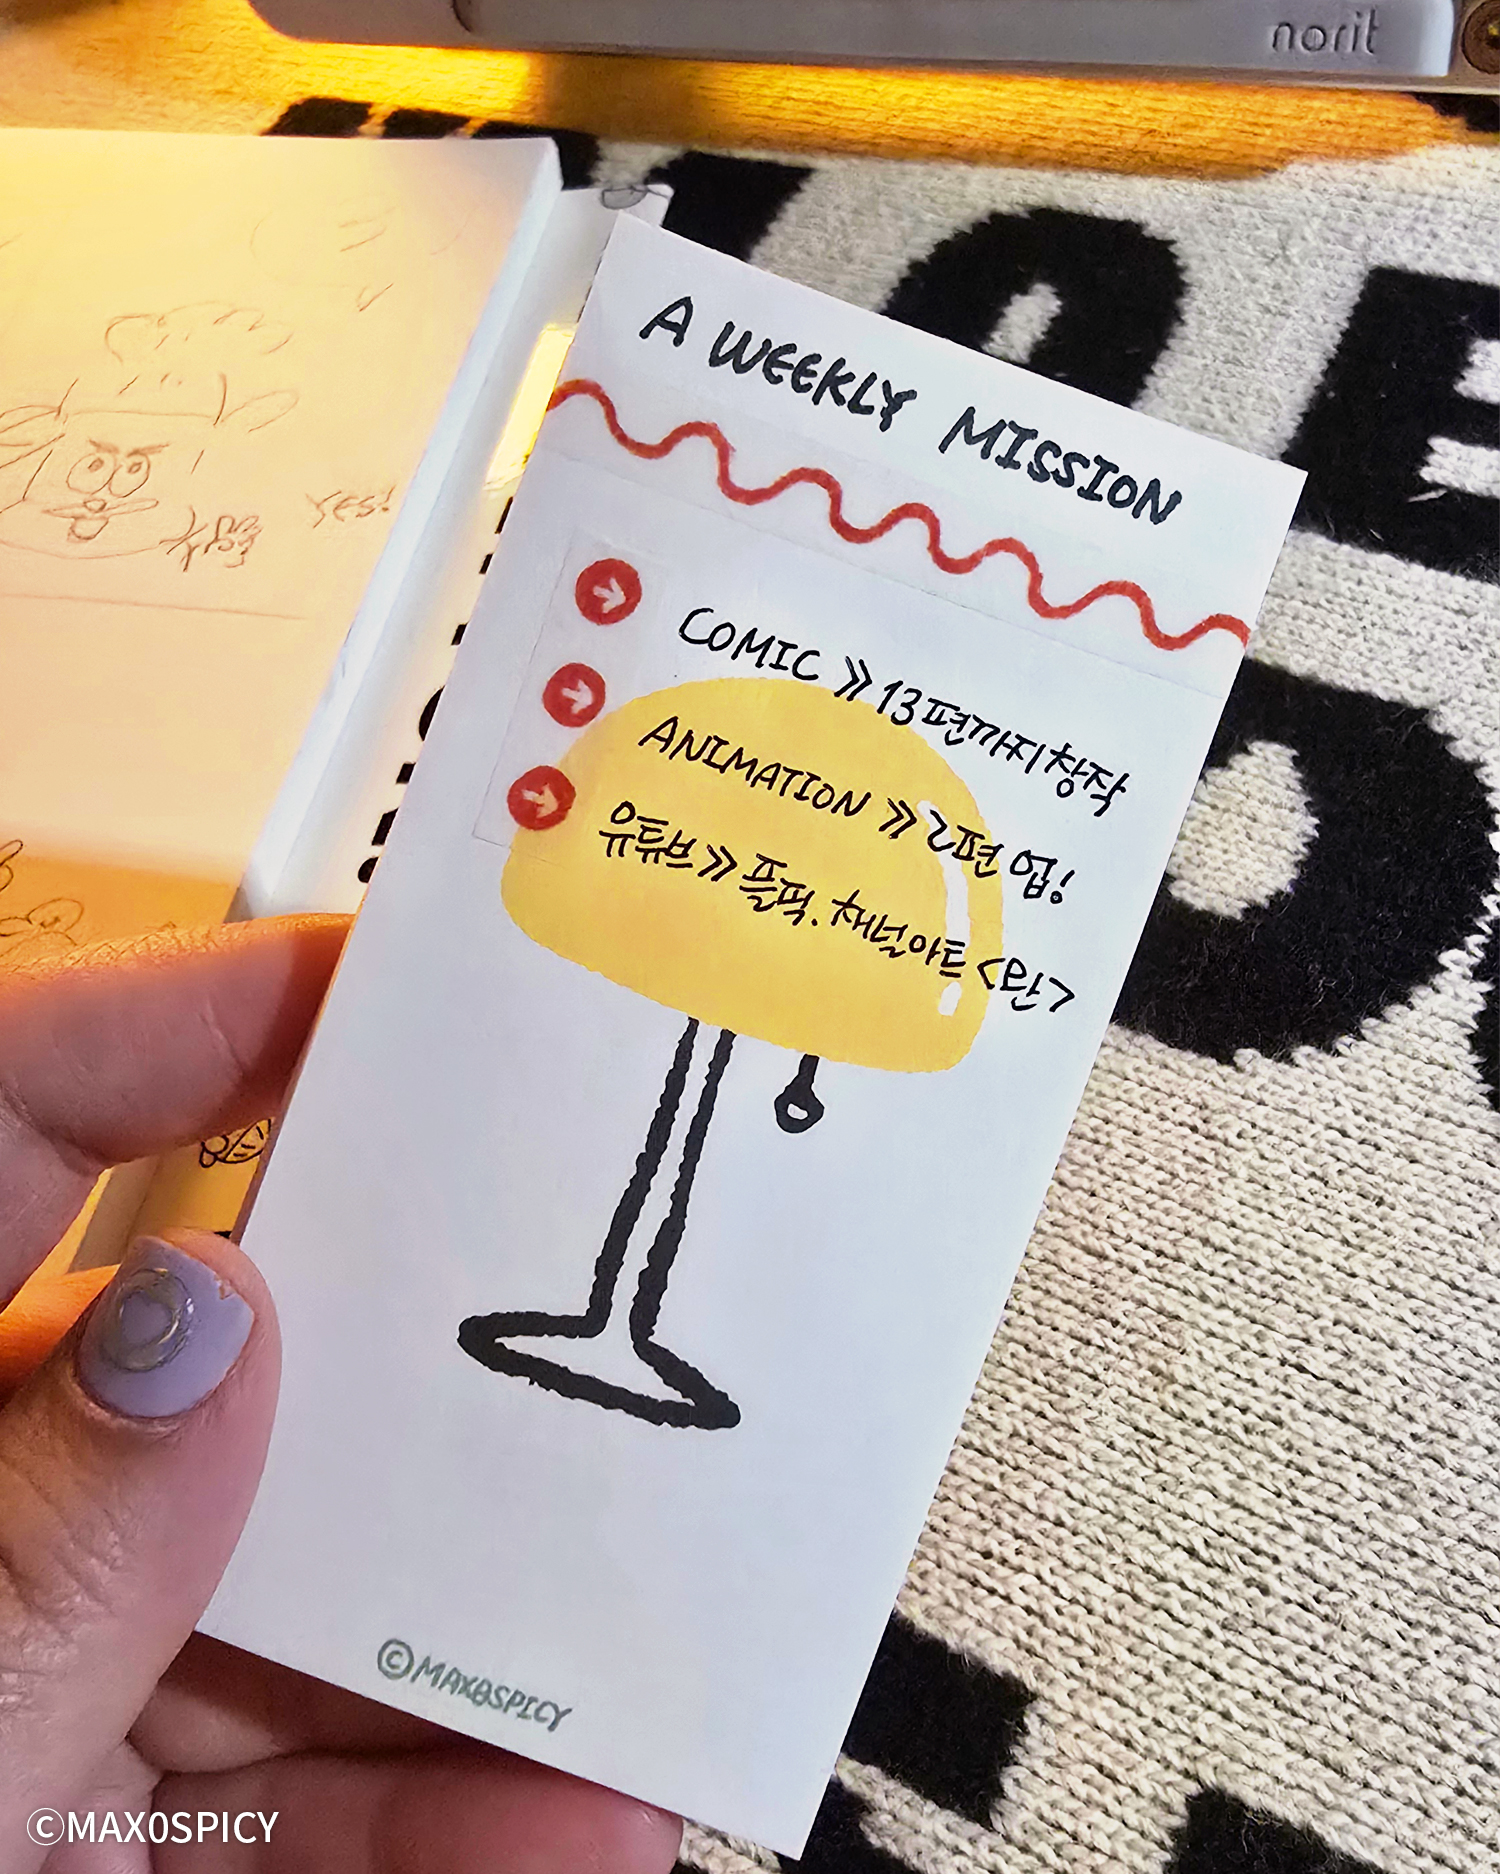 norit
A WEEKLY MISSION
COMIC >> 13편까지 창작
ANIMATION >> 2편 업!
유튜브 >> 플픽. 채널아트 <란>
YES!
©MAX0SPICY
©MAX0SPICY